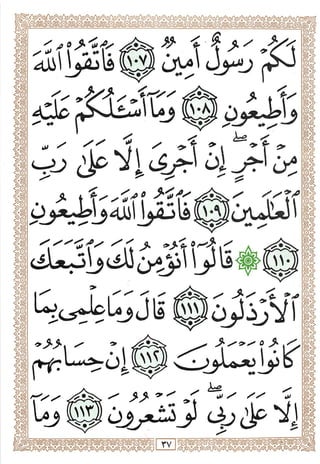 لَكُمْ رَسُولٌ أَمِينٌ ١٠٧ فَاتَّقُوا اللَّهَ
وَأَطِيعُونِ ١٠٨ وَمَا أَسْـَٔلُكُمْ عَلَيْهِ
مِنْ أَجْرٍ ۖ إِنْ أَجْرِىَ إِلَّا عَلَىٰ رَبِّ
الْعَـٰلَمِينَ ١٠٩ فَاتَّقُوا اللَّهَ وَأَطِيعُونِ
١١٠ قَالُوٓا أَنُؤْمِنُ لَكَ وَاتَّبَعَكَ
الْأَرْذَلُونَ ١١١ قَالَ وَمَا عِلْمِى بِمَا
كَانُوا يَعْمَلُونَ ١١٢ إِنْ حِسَابُهُمْ
إِلَّا عَلَىٰ رَبِّى ۖ لَوْ تَشْعُرُونَ ١١٣ وَمَآ
٣٧